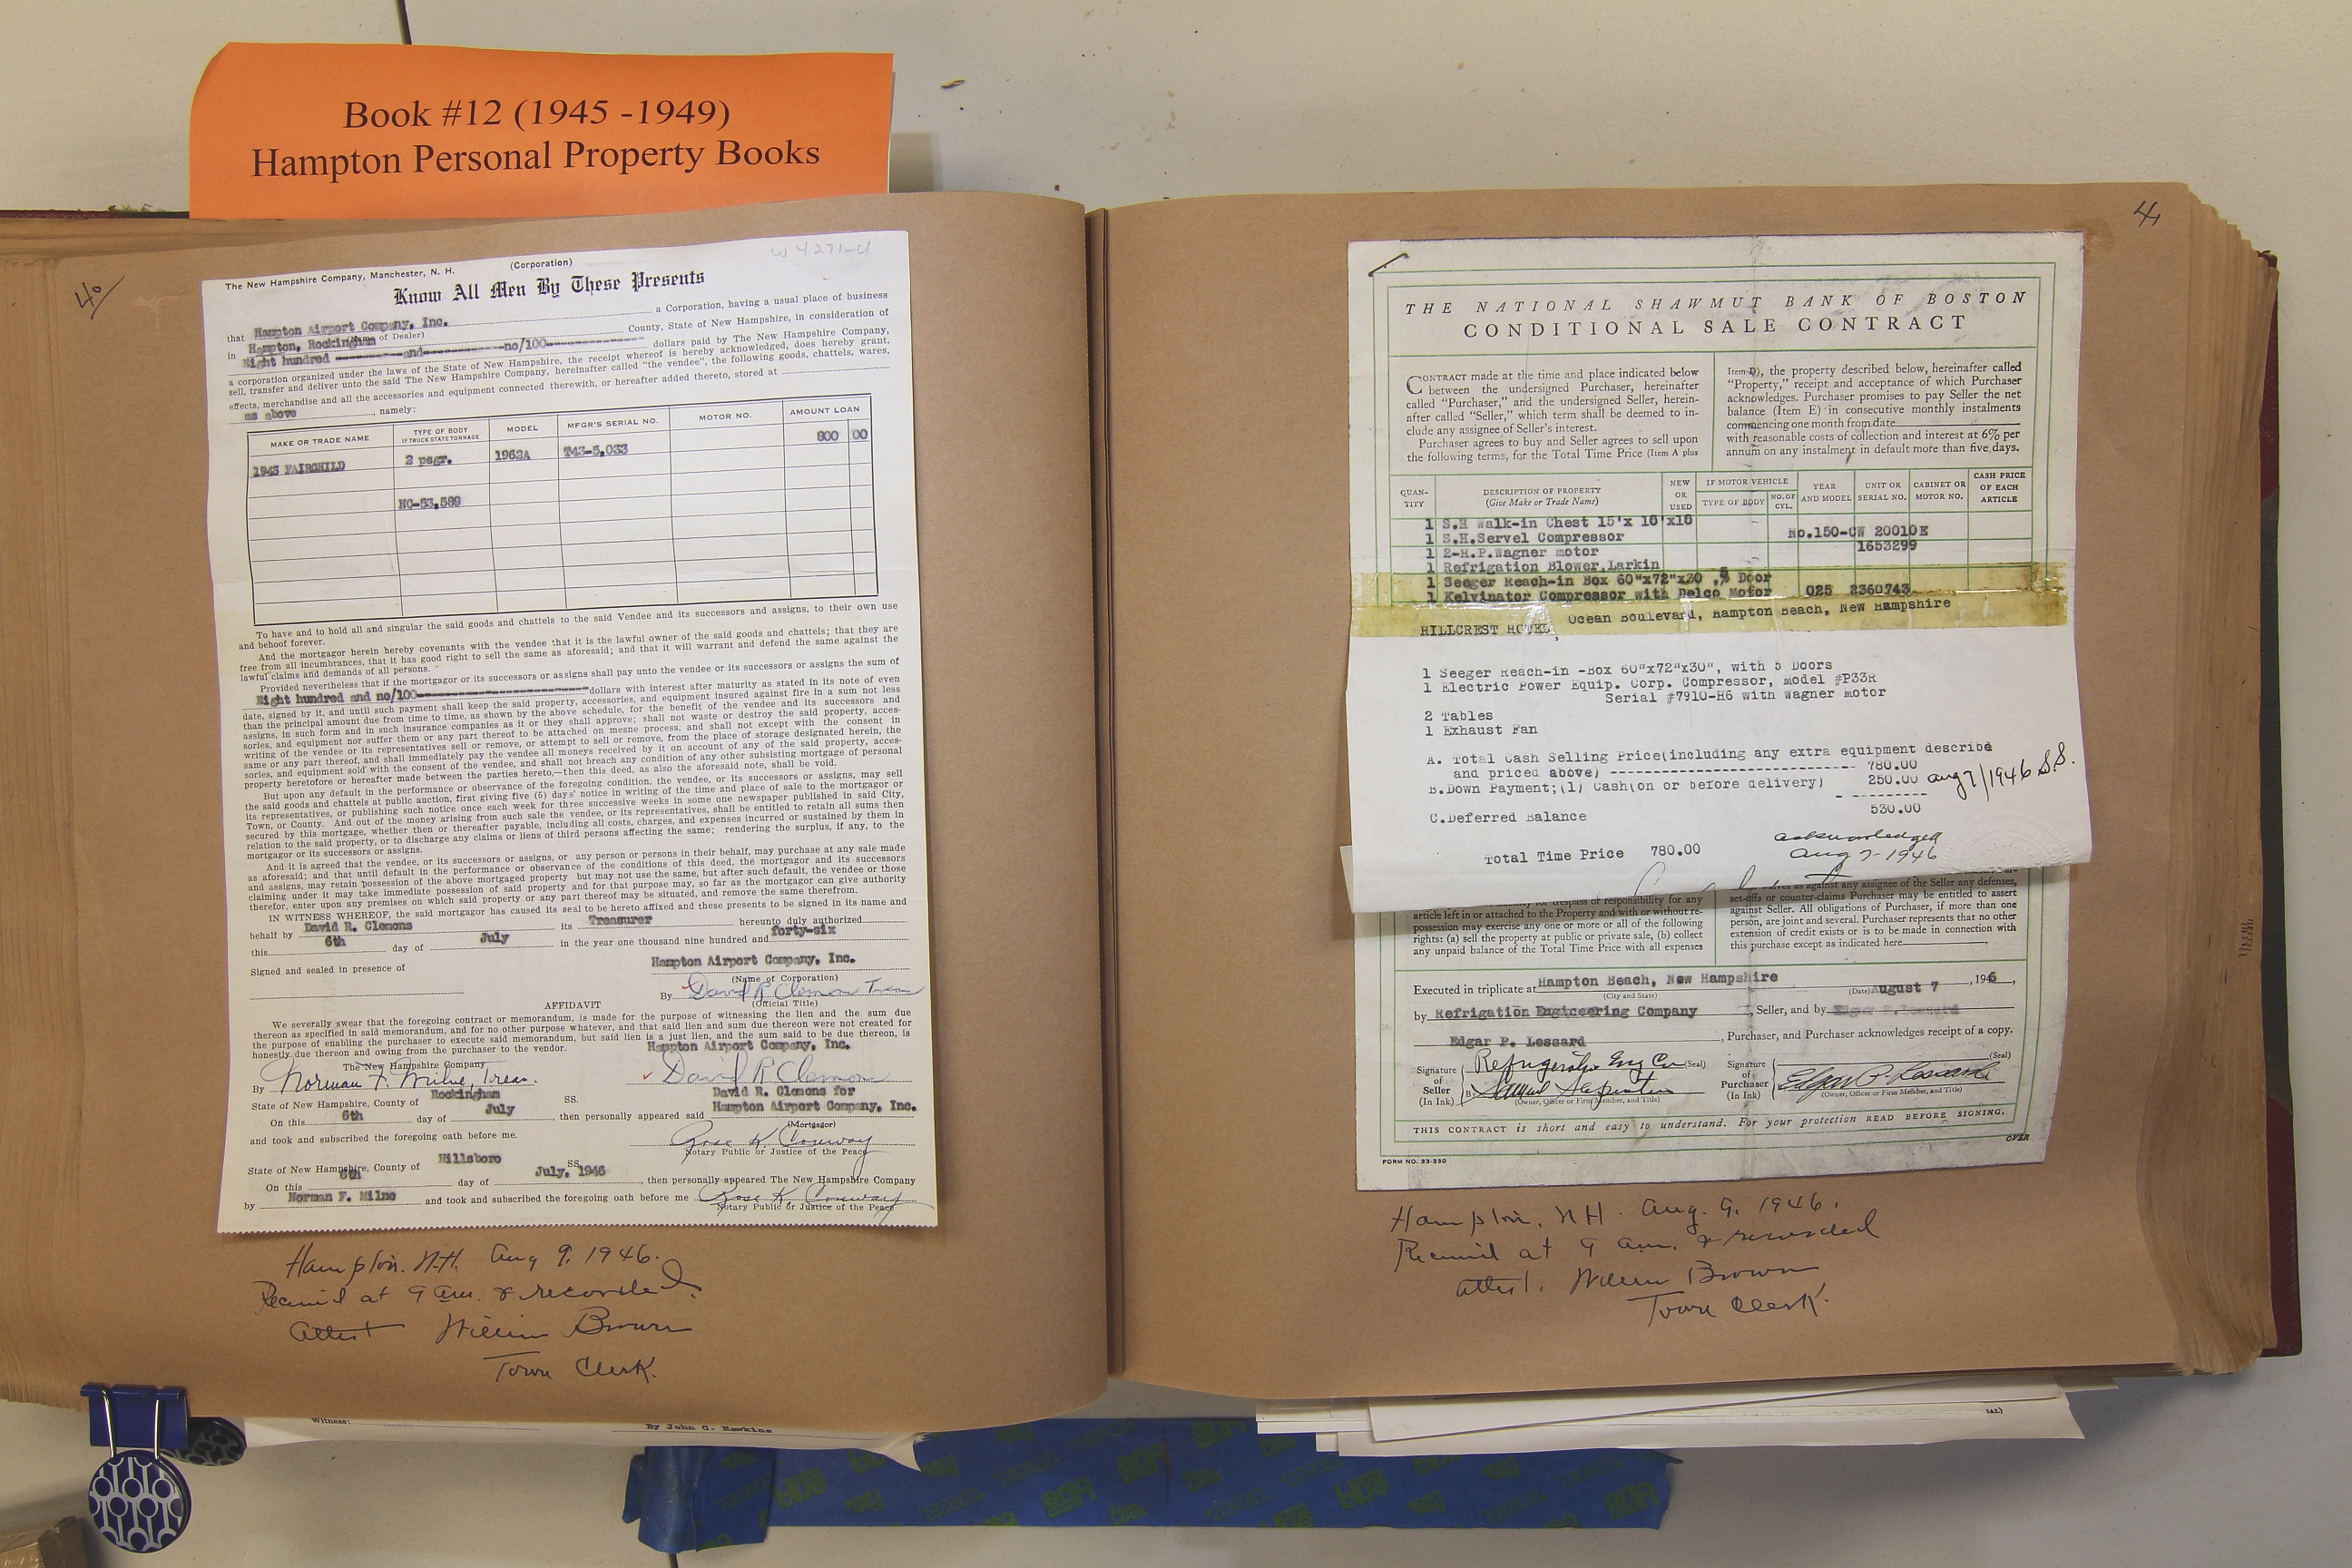 Book #12 (1945 -1949)
Hampton Personal Property Books
40
W 4271-U
The New Hampshire Company, Manchester, N. H.
(Corporation)
Know All Men By These Presents
that Hampton Airport Company, Inc. a Corporation, having a usual place of business
(Name of Dealer)
in Hampton, Rockingham County, State of New Hampshire, in consideration of
Eight hundred ----------and------------no/100-------------- dollars paid by The New Hampshire Company,
a corporation organized under the laws of the State of New Hampshire, the receipt whereof is hereby acknowledged, does hereby grant,
sell, transfer and deliver unto the said The New Hampshire Company, hereinafter called "the vendee", the following goods, chattels, wares,
effects, merchandise and all the accessories and equipment connected therewith, or hereafter added thereto, stored at
as above, namely:
MAKE OR TRADE NAME TYPE OF BODY IF TRUCK STATE TONNAGE MODEL MFGR'S SERIAL NO. MOTOR NO. AMOUNT LOAN
1943 FAIRCHILD 2 psgr. 1962A T43-5,033 800 00
NC-53,589
To have and to hold all and singular the said goods and chattels to the said Vendee and its successors and assigns, to their own use
and behoof forever.
And the mortgagor herein hereby covenants with the vendee that it is the lawful owner of the said goods and chattels; that they are
free from all incumbrances, that it has good right to sell the same as aforesaid; and that it will warrant and defend the same against the
lawful claims and demands of all persons.
Provided nevertheless that if the mortgagor or its successors or assigns shall pay unto the vendee or its successors or assigns the sum of
Eight hundred and no/100------------------------dollars with interest after maturity as stated in its note of even
date, signed by it, and until such payment shall keep the said property, accessories, and equipment insured against fire in a sum not less
than the principal amount due from time to time, as shown by the above schedule, for the benefit of the vendee and its successors and
assigns, in such form and in such insurance companies as it or they shall approve; shall not waste or destroy the said property, acces-
sories, and equipment nor suffer them or any part thereof to be attached on mesne process, and shall not except with the consent in
writing of the vendee or its representatives sell or remove, or attempt to sell or remove, from the place of storage designated herein, the
same or any part thereof, and shall immediately pay the vendee all moneys received by it on account of any of the said property, acces-
sories, and equipment sold with the consent of the vendee, and shall not breach any condition of any other subsisting mortgage of personal
property heretofore or hereafter made between the parties hereto,—then this deed, as also the aforesaid note, shall be void.
But upon any default in the performance or observance of the foregoing condition, the vendee, or its successors or assigns, may sell
the said goods and chattels at public auction, first giving five (5) days' notice in writing of the time and place of sale to the mortgagor or
its representatives, or publishing such notice once each week for three successive weeks in some one newspaper published in said City,
Town, or County. And out of the money arising from such sale the vendee, or its representatives, shall be entitled to retain all sums then
secured by this mortgage, whether then or thereafter payable, including all costs, charges, and expenses incurred or sustained by them in
relation to the said property, or to discharge any claims or liens of third persons affecting the same; rendering the surplus, if any, to the
mortgagor or its successors or assigns.
And it is agreed that the vendee, or its successors or assigns, or any person or persons in their behalf, may purchase at any sale made
as aforesaid; and that until default in the performance or observance of the conditions of this deed, the mortgagor and its successors
and assigns, may retain possession of the above mortgaged property but may not use the same, but after such default, the vendee or those
claiming under it may take immediate possession of said property and for that purpose may, so far as the mortgagor can give authority
therefor, enter upon any premises on which said property or any part thereof may be situated, and remove the same therefrom.
IN WITNESS WHEREOF, the said mortgagor has caused its seal to be hereto affixed and these presents to be signed in its name and
behalf by David R. Clemons its Treasurer hereunto duly authorized
this 6th day of July in the year one thousand nine hundred and forty-six
Signed and sealed in presence of
Hampton Airport Company, Inc.
(Name of Corporation)
By David R Clemons Treas
(Official Title)
AFFIDAVIT
We severally swear that the foregoing contract or memorandum, is made for the purpose of witnessing the lien and the sum due
thereon as specified in said memorandum, and for no other purpose whatever, and that said lien and sum due thereon were not created for
the purpose of enabling the purchaser to execute said memorandum, but said lien is a just lien, and the sum said to be due thereon, is
honestly due thereon and owing from the purchaser to the vendor.
Hampton Airport Company, Inc.
The New Hampshire Company
By Norman F. Milne, Treas.
David R Clemons
David R. Clemons for
State of New Hampshire, County of Rockingham SS.
Hampton Airport Company, Inc.
On this 6th day of July, then personally appeared said
(Mortgagor)
and took and subscribed the foregoing oath before me.
Rose K. Conway
Notary Public or Justice of the Peace
State of New Hampshire, County of Hillsboro SS.
On this 6th day of July, 1946, then personally appeared The New Hampshire Company
by Norman F. Milne and took and subscribed the foregoing oath before me Rose K. Conway
Notary Public or Justice of the Peace
Hampton. N.H. Aug 9, 1946.
Received at 9 a.m. & recorded.
Attest William Brown
Town Clerk.
Witness:
By John C. Hawkins
41
THE NATIONAL SHAWMUT BANK OF BOSTON
CONDITIONAL SALE CONTRACT
CONTRACT made at the time and place indicated below
between the undersigned Purchaser, hereinafter
called "Purchaser," and the undersigned Seller, herein-
after called "Seller," which term shall be deemed to in-
clude any assignee of Seller's interest.
Purchaser agrees to buy and Seller agrees to sell upon
the following terms, for the Total Time Price (Item A plus
Item D), the property described below, hereinafter called
"Property," receipt and acceptance of which Purchaser
acknowledges. Purchaser promises to pay Seller the net
balance (Item E) in consecutive monthly instalments
commencing one month from date
with reasonable costs of collection and interest at 6% per
annum on any instalment in default more than five days.
QUAN-TITY DESCRIPTION OF PROPERTY (Give Make or Trade Name) NEW OR USED IF MOTOR VEHICLE TYPE OF BODY NO. OF CYL. YEAR AND MODEL UNIT OR SERIAL NO. CABINET OR MOTOR NO. CASH PRICE OF EACH ARTICLE
1 S.H Walk-in Chest 15'x 16'x10
1 S.H.Servel Compressor No.150-CW 20010E
1 2-H.P.Wagner motor 1653299
1 Refrigation Blower,Larkin
1 Seeger Reach-in Box 60"x72"x30 ,5 Door
1 Kelvinator Compressor with Delco Motor 025 2360743
HILLCREST HOTEL, Ocean Boulevard, Hampton Beach, New Hampshire
1 Seeger Reach-in -Box 60"x72"x30", with 5 Doors
1 Electric Power Equip. Corp. Compressor, model #P33R
Serial #7910-H6 with Wagner motor
2 Tables
1 Exhaust Fan
A. Total Cash Selling Price(including any extra equipment describd
and priced above) ---------------------------- 780.00
B.Down Payment;(1) Cash(on or before delivery) 250.00 Aug 7/1946 S.S.
C.Deferred Balance 530.00
Total Time Price 780.00
acknowledged
Aug 7-1946
article left in or attached to the Property and with or without re-
possession may exercise any one or more of all of the following
rights: (a) sell the property at public or private sale, (b) collect
any unpaid balance of the Total Time Price with all expenses
waives as against any assignee of the Seller any defenses,
set-offs or counter-claims Purchaser may be entitled to assert
against Seller. All obligations of Purchaser, if more than one
person, are joint and several. Purchaser represents that no other
extension of credit exists or is to be made in connection with
this purchase except as indicated here
Executed in triplicate at Hampton Beach, New Hampshire (Date) August 7, 1946,
(City and State)
by Refrigation Engineering Company, Seller, and by
Edgar P. Lessard, Purchaser, and Purchaser acknowledges receipt of a copy.
Signature of Seller (In Ink) Refrigeration Eng Co (Seal)
By
(Owner, Officer or Firm Member, and Title)
Signature of Purchaser (In Ink) (Seal)
Edgar P. Lessard
(Owner, Officer or Firm Member, and Title)
THIS CONTRACT is short and easy to understand. For your protection READ BEFORE SIGNING.
OVER
FORM NO. 33-330
Hampton, NH. Aug. 9, 1946.
Received at 9 a.m. & recorded
Attest. William Brown
Town Clerk.